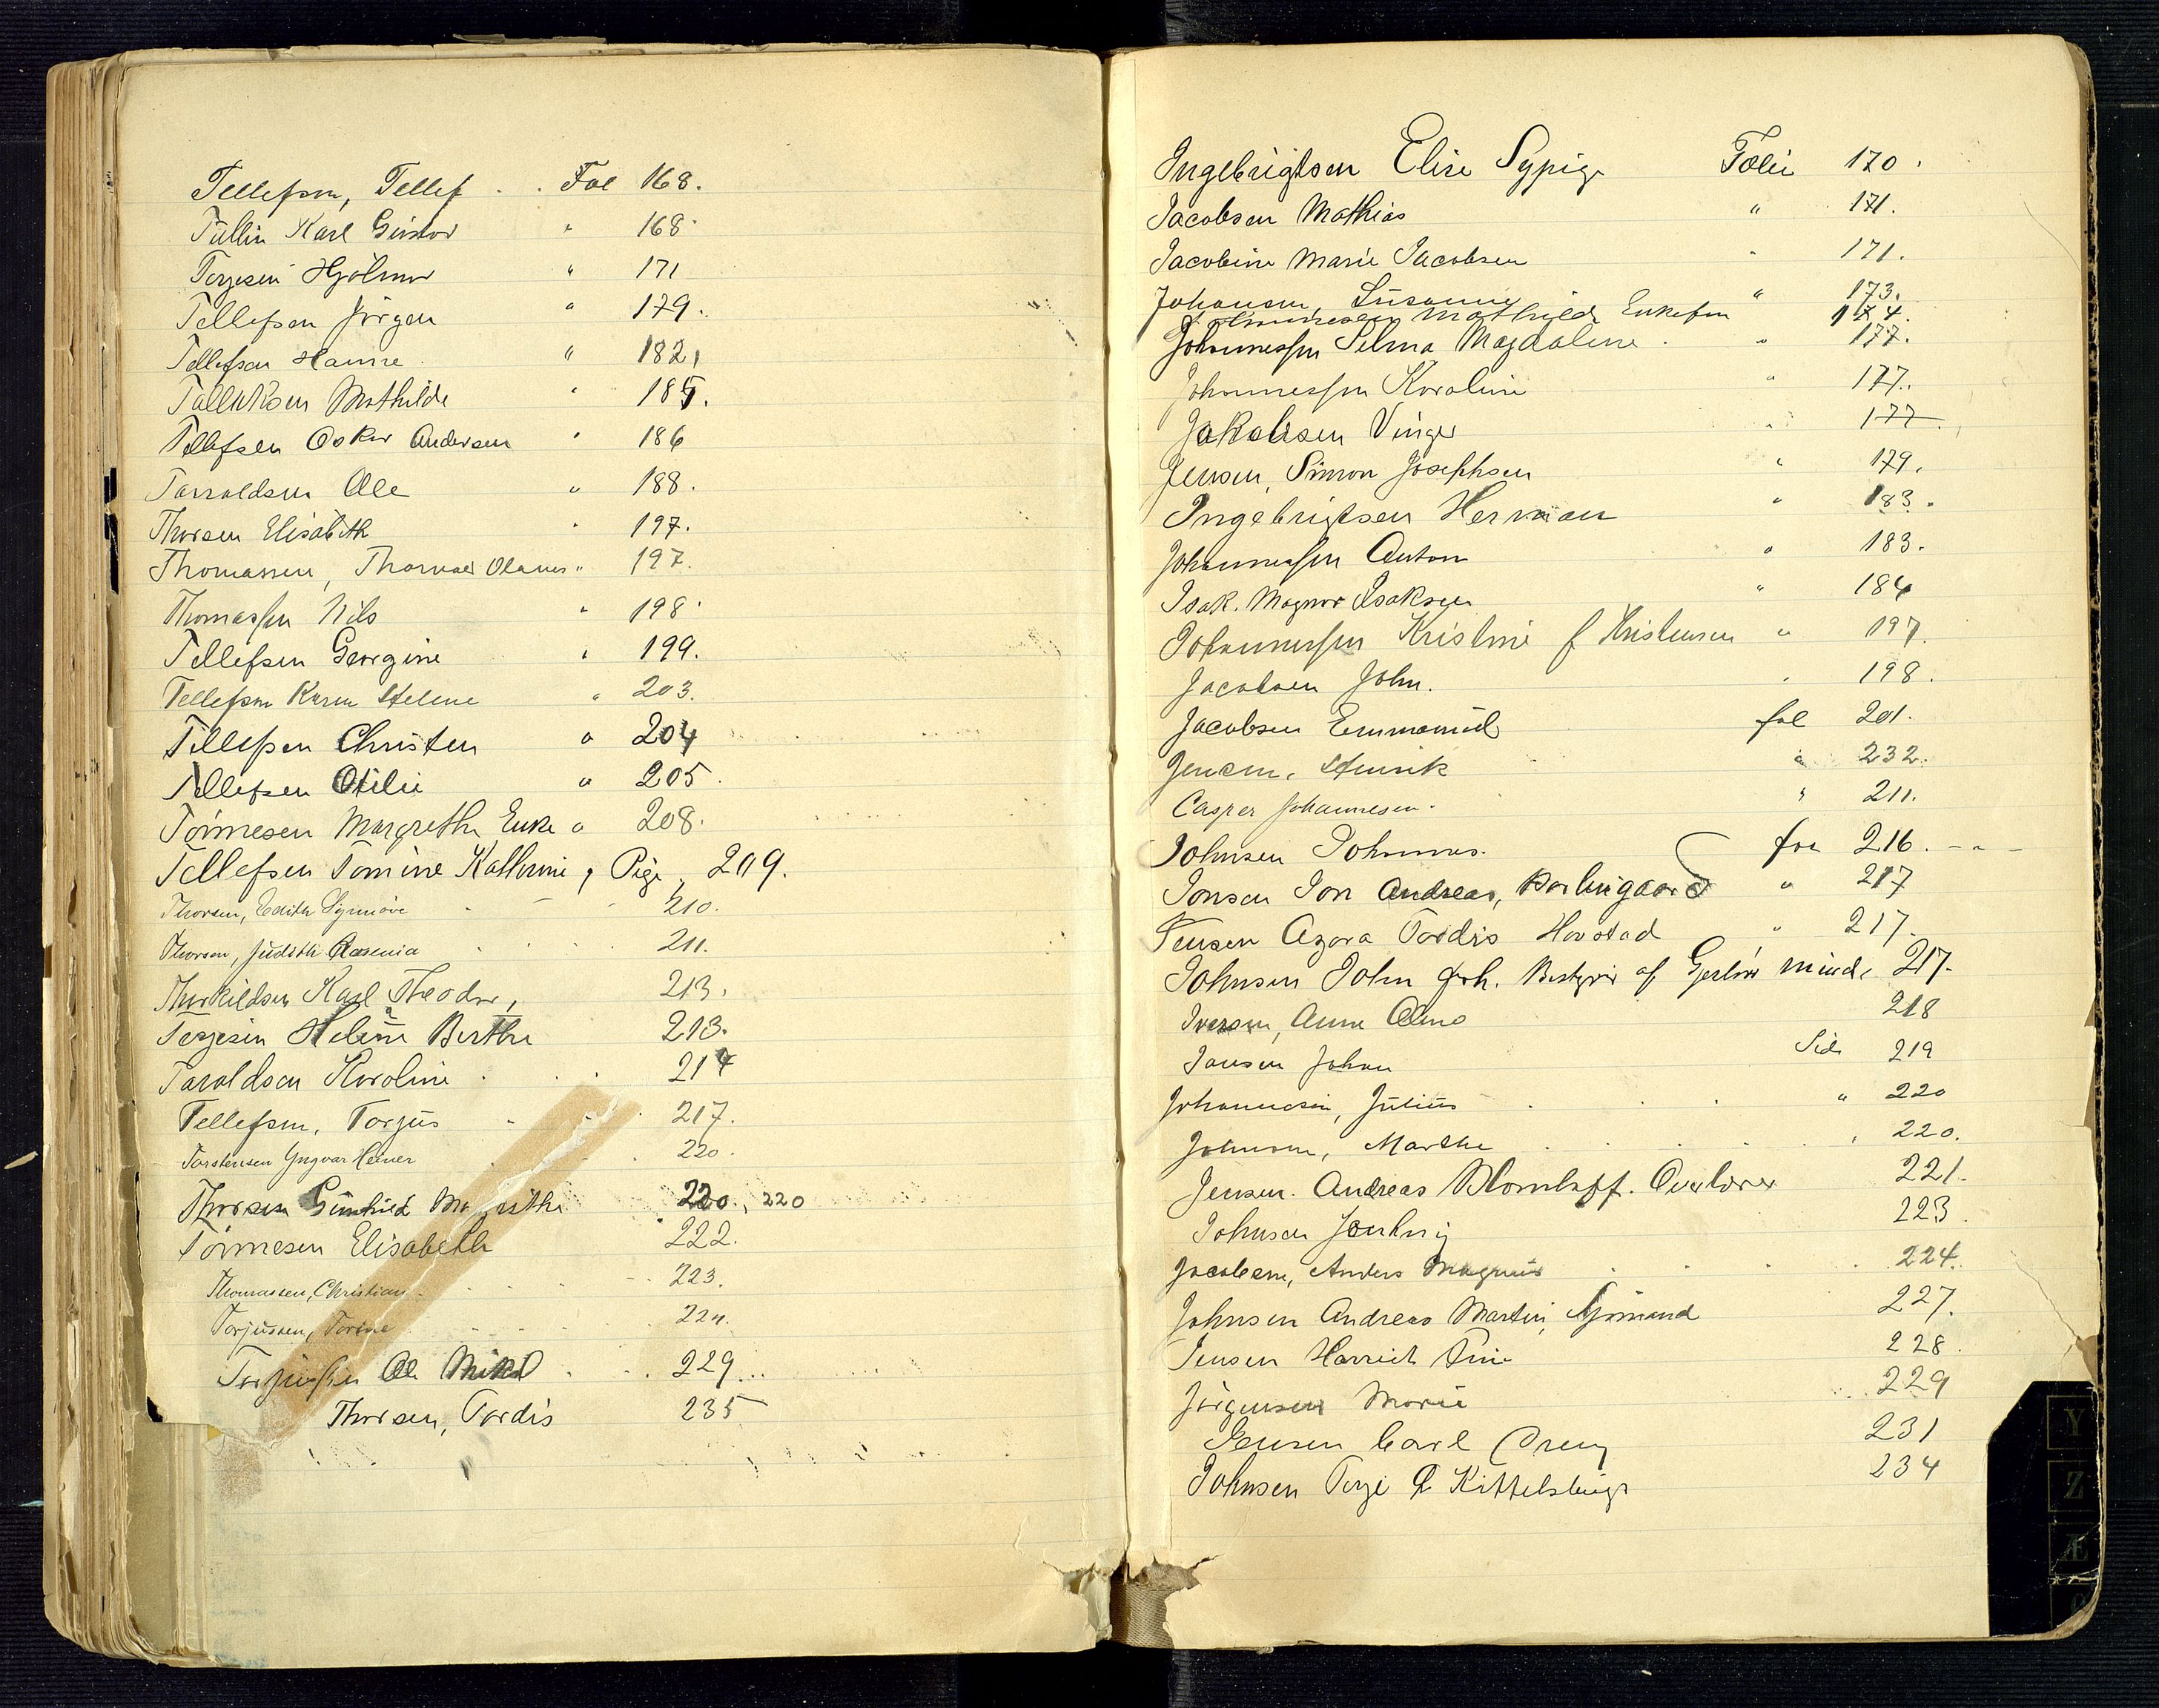 Tellefsen, Tellef . . Fol 168.
Tullin Karl Gustav " 168.
Terjesen Hjalmar " 171
Tellefsen Jörgen " 179.
Tellefsen Hanne " 182,
Mathilde " 185.
Tellefsen Oskar Andersen " 186
Tarraldsen Ole " 188.
Thorsen Elisabeth " 197.
Thomassen, Thorvald Olaues " 197.
Thomassen Nils " 198.
Tellefsen Georgine " 199.
Tellefsen Karen Helene " 203.
Tellefsen Christen " 204
Tellefsen Otilie " 205.
Tönnesen Margrethe Enke " 208.
Tellefsen Tomine Kathrine, Pige, 209.
Thorsen, Edith Synnöve 210.
Thorsen, Judith Rasenia 211.
Thorkildsen Karl Theodor, 213.
Terjesen Helene Berthe 213.
Taraldsen Karoline 214
Tellefsen, Torjus 217.
Torstensen Yngvar Heiner 220.
Thorsen Gunhild Margrethe 220., 220
Tönnesen Elisabeth 222.
Thomassen, Christian 223.
Torjussen, Torine 224.
Torjussen Ole Mikal 229
Thorsen, Tordis 235
Ingebrigtsen Elise Sypige Folio 170.
Jacobsen Mathias " 171.
Jacobine Marie Jacobsen " 171.
Johansen, Susanne " 173.
Johannesen Mathilde Enkefru 174.
Johannessen Selma Magdalene . " 177.
Johannessen Karoline " 177.
Jakobsen Vinger " 177
Jensen, Simon Josephsen " 179.
Ingebrigtsen Herman " 183.
Johannessen Anton " 183.
Isak. Magnor Isaksen " 184
Johannessen Kristine f Kristensen " 197.
Jacobsen John. " 198.
Jacobsen Emmanuel fol 201.
Jensen, Henrik " 232.
Casper Johannesen. " 211.
Johnsen Johannes. fol 216. - " -
Jonsen Jon Andreas, " 217
Jensen Azora Tordis Havstad " 217.
Johnsen John Joh. Bestyrer af minde 217.
Iversen, Anne Oline 218
Jansen Johan Side 219
Johannesen, Julius " 220
Johnsen, Marthe " 220.
Jensen. Andreas Blomhoff. Overlærer 221.
Johnsen 223.
Jacobsen, Anders Magnus 224.
Johnsen Andreas Martin, Sjömand 227.
Jensen Harriet Tine 228.
Jörgensen Marie 229
Jensen Carl 231
Johnsen Terje P Kittelsbugt 234
Y
Z
Æ